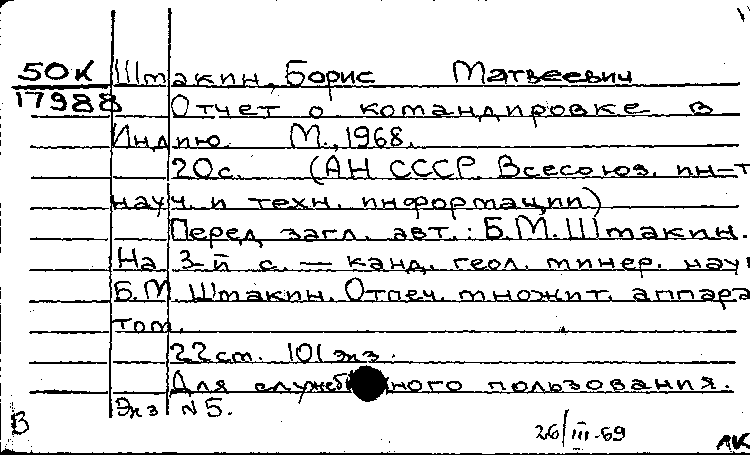 50К Штакин, Борис Матвеевич
17988 Отчет о командировке в
Индию. М., 1968.
20с. (АН СССР. Всесоюз. ин-т
науч. и техн. информации)
Перед загл. авт.: Б.М.Штакин.
На 3-й с. — канд. геол. минер. наук
Б.М. Штакин. Отпеч. множит. аппара
том.
22см. 101 экз.
Для служебного пользования.
Экз N5.
В 26/III-69 АК